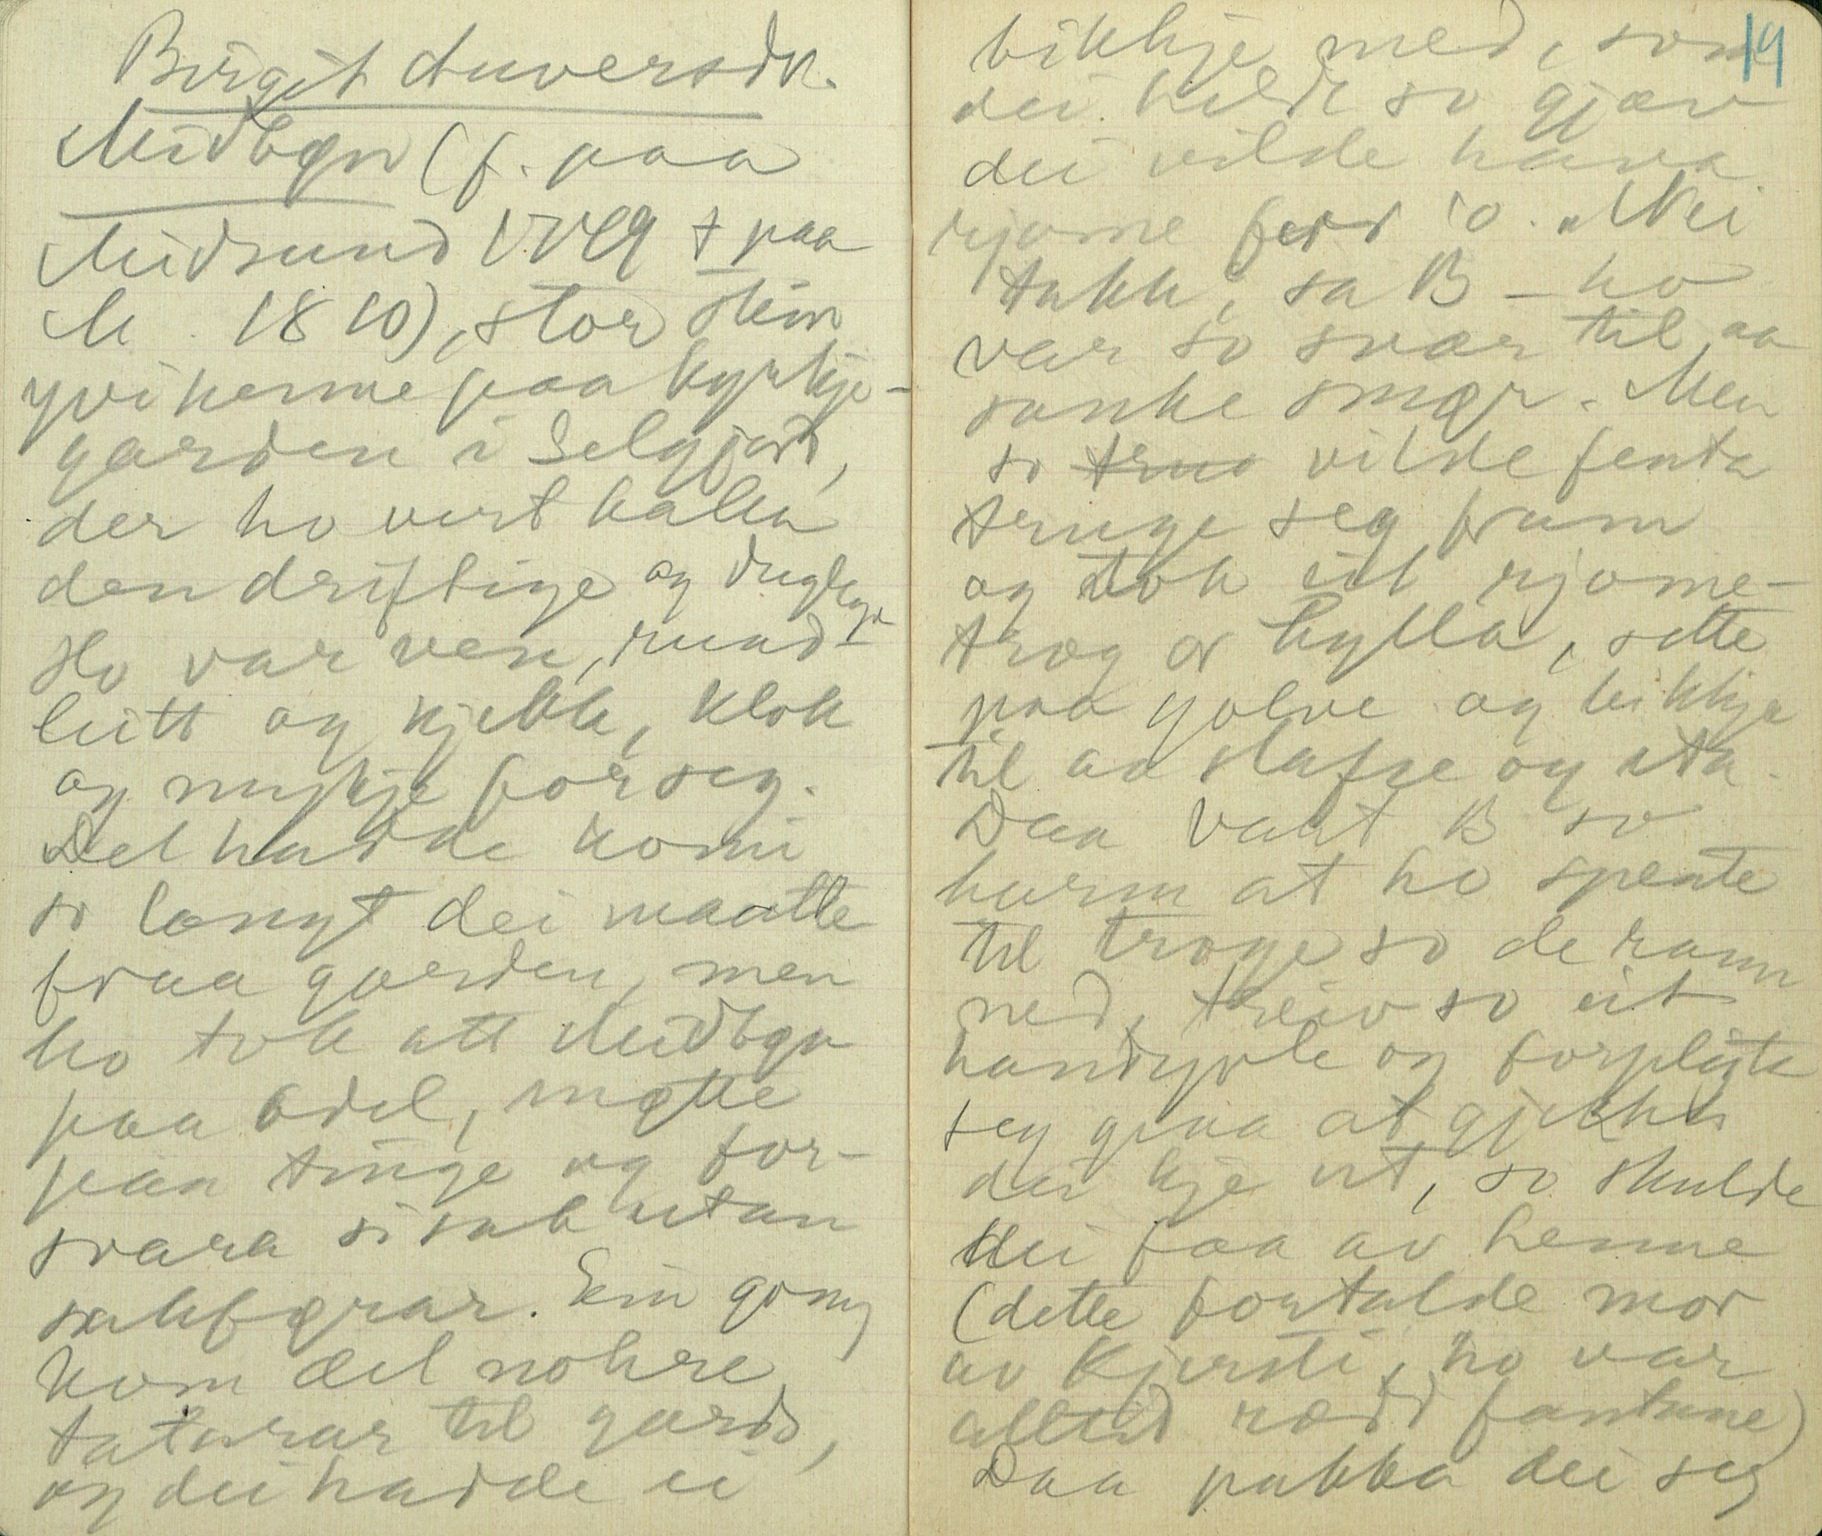 Birgit Anversdtr.
Midbøn (f. paa
Midsund 1749 + paa
M. 1810), stor stein
yvi henne paa kyrkje-
garden i Selgjord,
der ho vert kalla
den driftige og duglege
Ho var ven, rund-
leitt og kjekk, klok
og mykje for seg.
Det hadde komi
so langt dei maatte
fraa garden, men
ho tok att Midbøn
paa odel, møtte
paa tinge og for-
svara si sak utan
sakførar. Ein gong
kom det nokre
taterar til gards,
og dei hadde ei
19
bikkje med, som
dei heldt so gjæv
dei vilde hava
rjome ferd 'o. "Nei
takk", sa B - ho
var so svær til aa
sanke smør. Men
so truo vilde fenta
truge seg fram
og tok eit rjome-
trog or hylla, sette
paa golve og bikkja
til aa slafse og eta.
Daa vart B so
harm at ho spente
til troge so de rann
ned, treiv so eit
handyvle og forpligta
seg paa at gjekk
dei kje ut, so skulde
dei faa av henne
(dette fortalde mor
av Kjersti, ho var
alltid rædd fantane)
Daa pakka dei seg